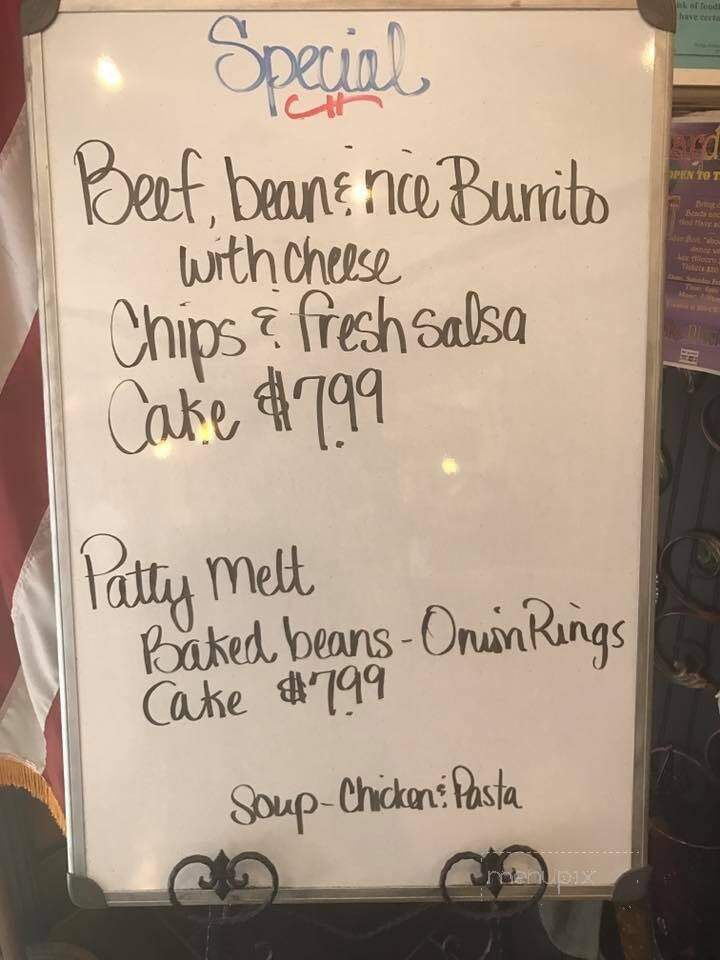 Special
Beef, bean & rice Burrito
with cheese
Chips & fresh salsa
Cake $7.99
Patty melt
Baked beans - Onion Rings
Cake $7.99
Soup - Chicken & Pasta
menupix
OPEN TO T